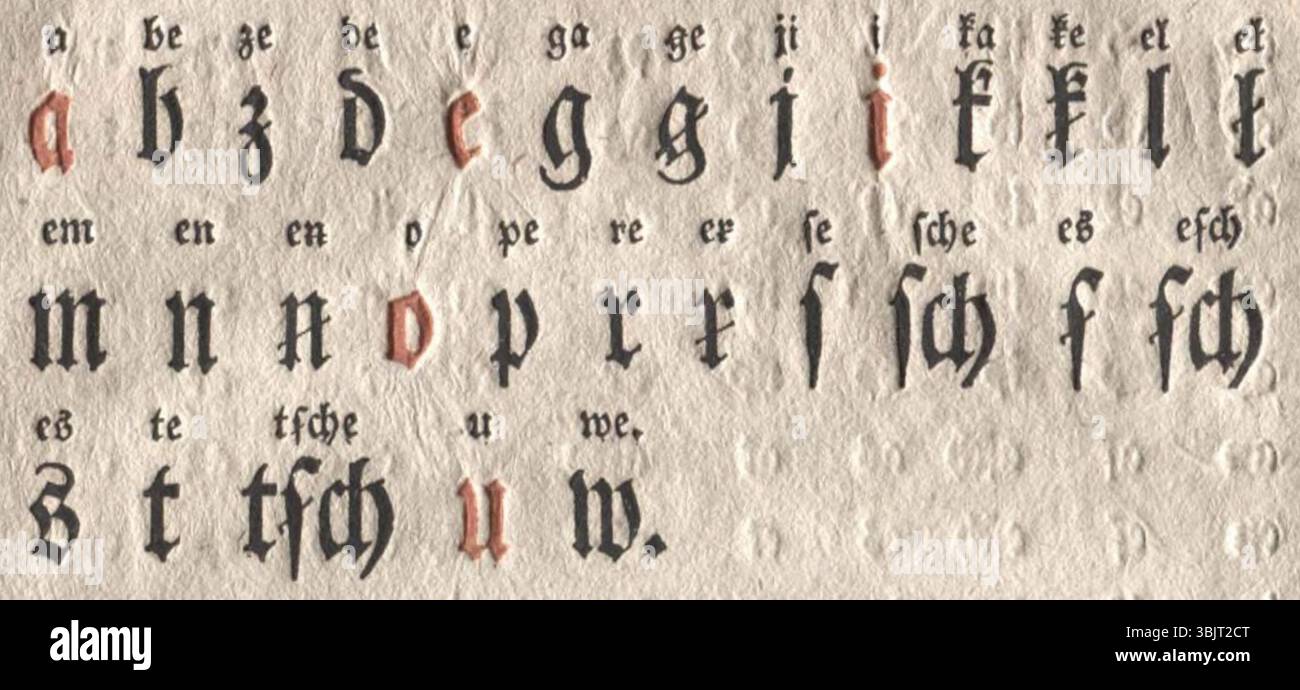 a be ze de e ga ꞡe ji i ka ꞣe el eł
a b z d e g ꞡ j i k ꞣ l ł
em en eꞥ o pe re eꞧ ſe ſche eꞩ eẜch
m n ꞥ o p r ꞧ ſ ſch ẜ ẜch
es te tẜche u we.
s t tẜch u w.
alamy
Image ID: 3BJT2CT
www.alamy.com